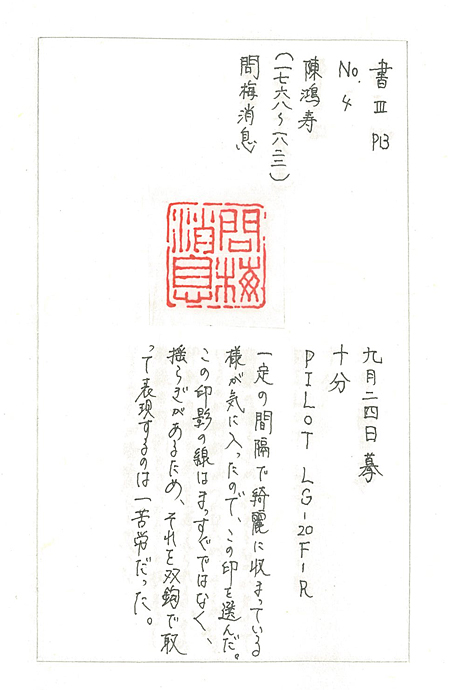 書Ⅲ P13
No.4
陳鴻寿
(一七六八〜一八二二)
問梅消息
問梅
消息
九月二四日摹
十分
PILOT LG-20F-R
一定の間隔で綺麗に収まっている
様が気に入ったので、この印を選んだ。
この印影の線はまっすぐではなく、
揺らぎがあるため、それを双鉤で取
って表現するのは一苦労だった。